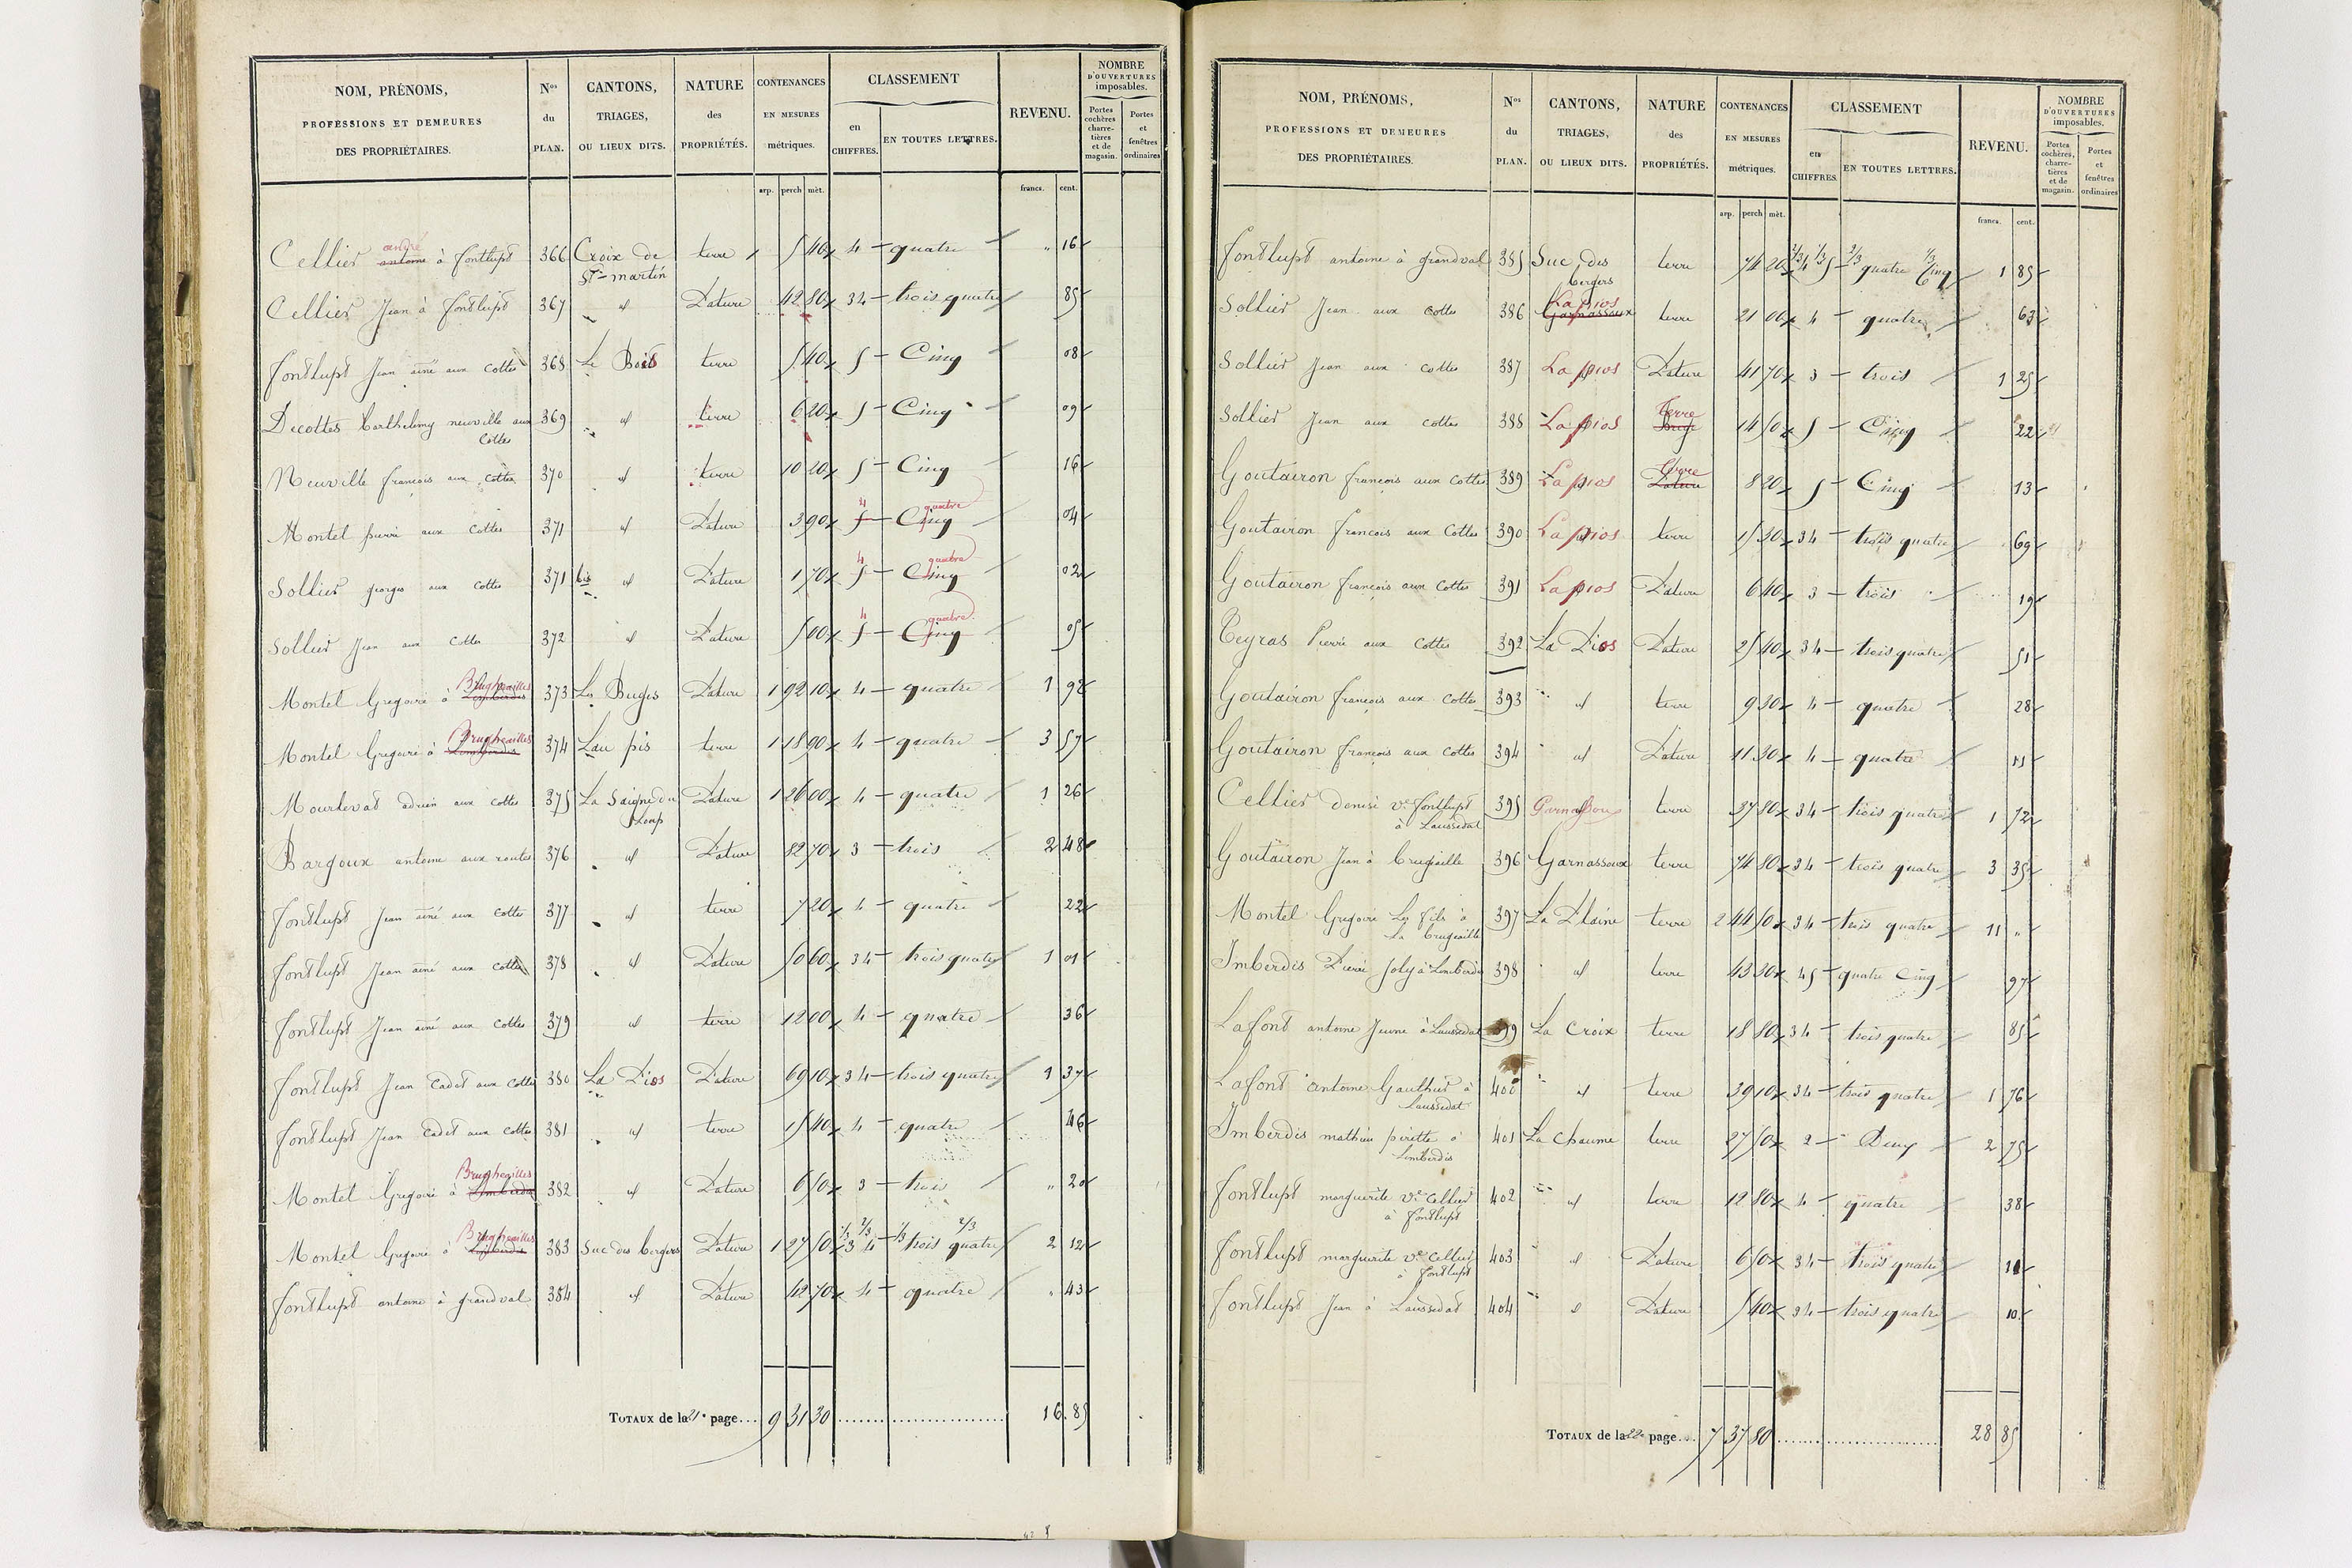 NOM, PRÉNOMS, PROFESSIONS ET DEMEURES DES PROPRIÉTAIRES. Nos du PLAN. CANTONS, TRIAGES, OU LIEUX DITS. NATURE des PROPRIÉTÉS. CONTENANCES EN MESURES métriques. CLASSEMENT en CHIFFRES. EN TOUTES LETTRES. REVENU. NOMBRE D'OUVERTURES imposables. Portes cochères charretières et de magasin. Portes et fenêtres ordinaires
arp. perch mèt. francs. cent.
Cellier antoine andré à fontlupt 366 Croix de St-martin terre 5 40 4 quatre " 16
Cellier Jean à fontlupt 367 id Pature 42 80 34 trois quatre 85
fontlupt Jean ainé aux cottes 368 Le Bois terre 5 40 5 Cinq 08
Decottes barthelemy neuville aux cottes 369 id terre 6 20 5 Cinq 09
Neuville francois aux cottes 370 id terre 10 20 5 Cinq 16
Montel pierre aux cottes 371 id Pature 3 90 5 4 Cinq quatre 04
Sollier georges aux cottes 371 bis id Pature 1 70 5 4 Cinq quatre 02
Sollier Jean aux cottes 372 id Pature 5 00 5 4 Cinq quatre 05
Montel Gregoire à Brugheailles 373 Les Buges Pature 1 92 10 4 quatre 1 92
Montel Gregoire à Brugheailles 374 Lau pis terre 1 18 90 4 quatre 3 57
Mourlevat adrien aux cottes 375 La Saigne du Loup Pature 1 26 00 4 quatre 1 26
Bargoux antoine aux routes 376 id Pature 82 70 3 trois 2 48
fontlupt Jean ainé aux cottes 377 id terre 7 20 4 quatre 22
fontlupt Jean ainé aux cottes 378 id Pature 50 60 34 trois quatre 1 01
fontlupt Jean ainé aux cottes 379 id terre 12 00 4 quatre 36
fontlupt Jean Cadet aux cottes 380 La Pios Pature 69 10 34 trois quatre 1 37
fontlupt Jean Cadet aux cottes 381 id terre 15 40 4 quatre 46
Montel Gregoire à Limberdis Brugheailles 382 id Pature 6 50 3 trois " 20
Montel Gregoire à Brugheailles 383 Suc des bergers Pature 1 27 50 1/3 3 2/3 4 1/3 trois 2/3 quatre 2 12
fontlupt antoine à grandval 384 id Pature 42 70 4 quatre " 43
TOTAUX de la 21e page.... 9 31 30 16 85
NOM, PRÉNOMS, PROFESSIONS ET DEMEURES DES PROPRIÉTAIRES. Nos du PLAN. CANTONS, TRIAGES, OU LIEUX DITS. NATURE des PROPRIÉTÉS. CONTENANCES EN MESURES métriques. CLASSEMENT en CHIFFRES. EN TOUTES LETTRES. REVENU. NOMBRE D'OUVERTURES imposables. Portes cochères, charretières et de magasin. Portes et fenêtres ordinaires
arp. perch mèt. francs. cent.
fontlupt antoine à grandval 385 Suc des bergers terre 74 20 2/3 4 1/3 5 2/3 quatre 1/3 Cinq 1 85
Sollier Jean aux cottes 386 Garnassoux La pios terre 21 00 4 quatre 63
Sollier Jean aux cottes 387 La pios Pature 41 70 3 trois 1 25
Sollier Jean aux cottes 388 La pios terre 14 50 5 Cinq 22
Goutairon francois aux cottes 389 La pios Pature terre 8 20 5 Cinq 13
Goutairon francois aux cottes 390 La pios terre 15 30 34 trois quatre 69
Goutairon francois aux cottes 391 La pios Pature 6 40 3 trois 19
Teyras Pierre aux cottes 392 La Pios Pature 25 40 34 trois quatre 51
Goutairon francois aux cottes 393 id terre 9 30 4 quatre 28
Goutairon francois aux cottes 394 id Pature 11 30 4 quatre 11
Cellier denise ve fontlupt à Laussedat 395 Garnassoux terre 37 80 34 trois quatre 1 72
Goutairon Jean à brugiaille 396 Garnassoux terre 74 80 34 trois quatre 3 35
Montel Gregoire Les fils à La brugiaille 397 La Plaine terre 2 44 50 34 trois quatre 11 "
Imberdis Pierre Joly à Limberdis 398 id terre 43 30 45 quatre Cinq 97
Lafont antoine Jeune à Laussedat 399 La Croix terre 18 80 34 trois quatre 85
Lafont antoine Gauthier à Laussedat 400 id terre 39 10 34 trois quatre 1 76
Imberdis mathieu pirette à Limberdis 401 La Chaume terre 27 50 2 Deux 2 75
fontlupt marguerite ve Cellier à fontlupt 402 id terre 12 80 4 quatre 38
fontlupt marguerite ve Cellier à fontlupt 403 id Pature 6 50 34 trois quatre 11
fontlupt Jean à Laussedat 404 id Pature 5 40 34 trois quatre 10
TOTAUX de la 22e page.... 7 37 80 28 85